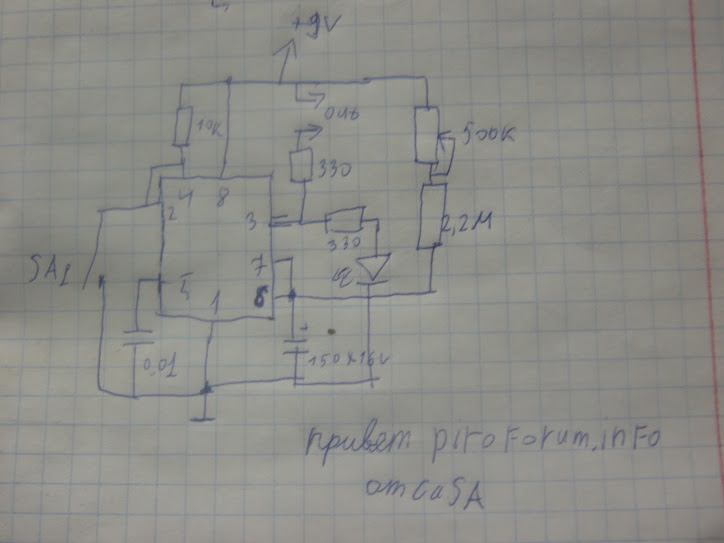 +9V
10K
500K
330
4 8
2
3
330
2,2M
7
SA1
5
6
1
+
0,01
150x16V
привет piroForum.inFo
от саSA